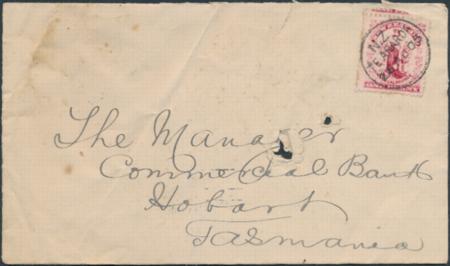 N.Z.
The Manager
Commercial Bank
Hobart
Tasmania